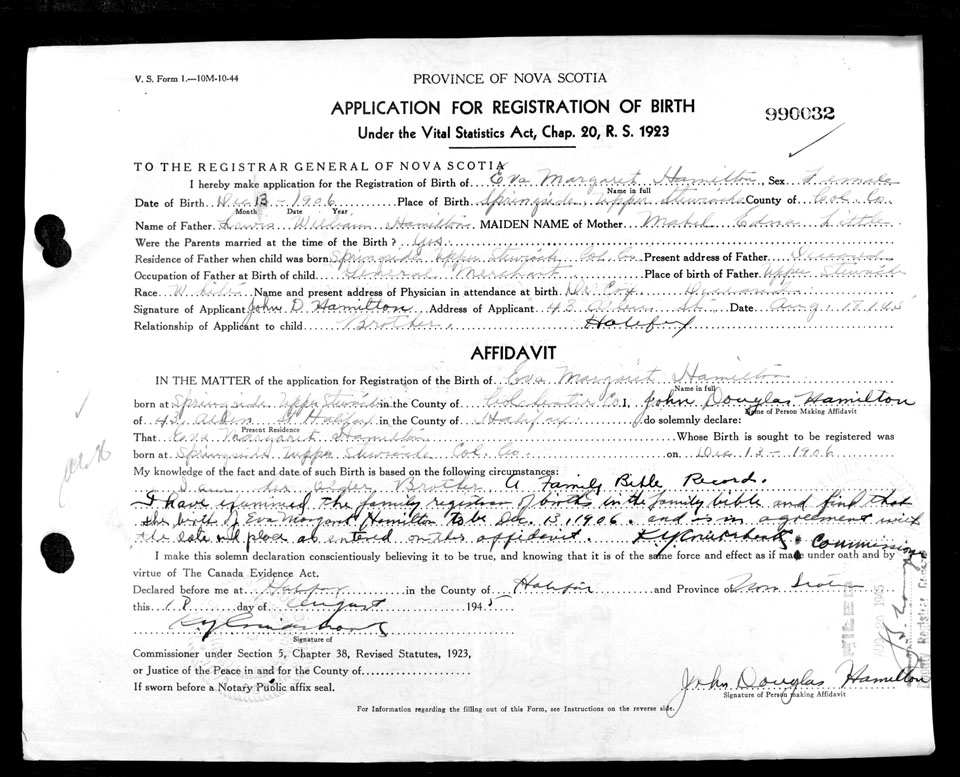 V. S. Form 1.—10M-10-44
PROVINCE OF NOVA SCOTIA
APPLICATION FOR REGISTRATION OF BIRTH
990032
Under the Vital Statistics Act, Chap. 20, R. S. 1923
TO THE REGISTRAR GENERAL OF NOVA SCOTIA
I hereby make application for the Registration of Birth of Eva Margaret Hamilton, Sex Female
Name in full
Date of Birth Dec 13 - 1906 Place of Birth Springside, Upper Stewiacke County of Col. Co.
Month Date Year
Name of Father Lewis William Hamilton MAIDEN NAME of Mother Mabel Edna Little
Were the Parents married at the time of the Birth? Yes
Residence of Father when child was born Springside Upper Stewiacke Col. Co. Present address of Father Deceased
Occupation of Father at Birth of child General Merchant Place of birth of Father Upper Stewiacke
Race White Name and present address of Physician in attendance at birth Dr Cox Deceased
Signature of Applicant John D. Hamilton Address of Applicant 43 St. Date Aug. 18.145
Relationship of Applicant to child Brother. Halifax
AFFIDAVIT
IN THE MATTER of the application for Registration of the Birth of Eva Margaret Hamilton
Name in full
born at Springside Upper Stewiacke in the County of Colchester Co I, John Douglas Hamilton
Name of Person Making Affidavit
of 43 St Halifax in the County of Halifax do solemnly declare:
Present Residence
That Eva Margaret Hamilton Whose Birth is sought to be registered was
born at Springside Upper Stewiacke Col. Co. on Dec 13 - 1906
My knowledge of the fact and date of such Birth is based on the following circumstances:
I am her older Brother A Family Bible Record.
I have examined the family registration of births in the family bible and find that
the birth of Eva Margaret Hamilton to be Dec. 13, 1906. and is in agreement with
the date and place as entered on this affidavit. Commissioner
I make this solemn declaration conscientiously believing it to be true, and knowing that it is of the same force and effect as if made under oath and by
virtue of The Canada Evidence Act.
Declared before me at Halifax in the County of Halifax and Province of Nova Scotia
this 18 day of August 1945
Signature of
Commissioner under Section 5, Chapter 38, Revised Statutes, 1923,
or Justice of the Peace in and for the County of
If sworn before a Notary Public affix seal.
John Douglas Hamilton
Signature of Person making Affidavit
For Information regarding the filling out of this Form, see Instructions on the reverse side.
FILED